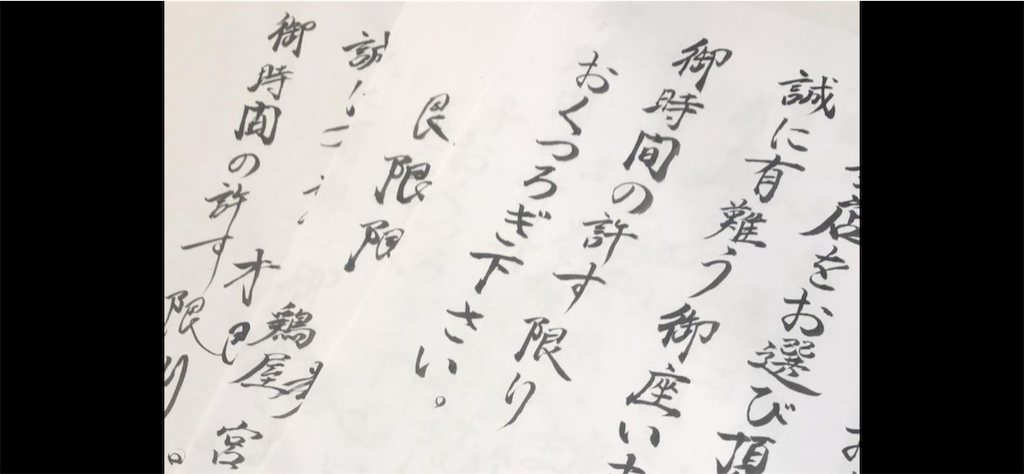 店をお選び頂
誠に有難う御座い
御時間の許す限り
おくつろぎ下さい。
艮
限限
誠に
御時間の許す限り。
鶏屋
宮